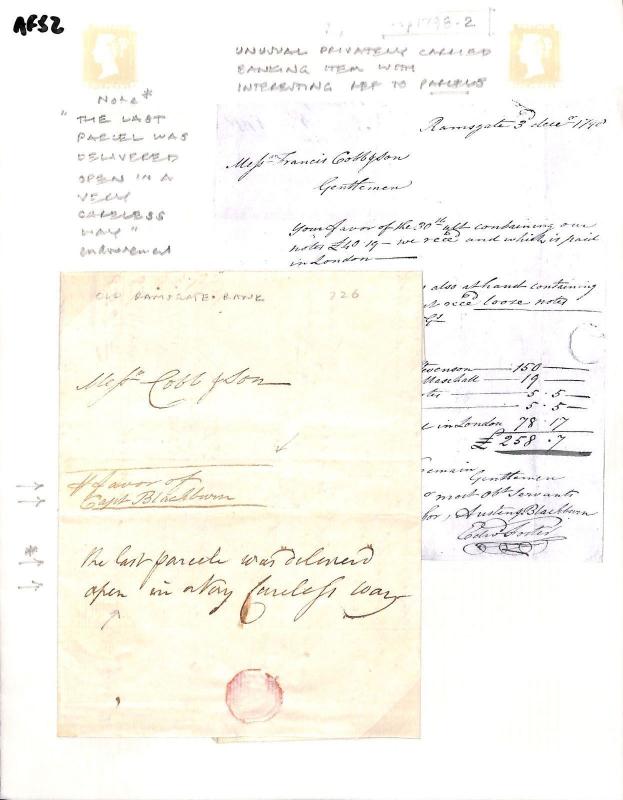 AF52
1798-2
UNUSUAL PRIVATELY CARRIED
BANKING ITEM WITH
INTERESTING REF TO PARCELS
Note *
"THE LAST
PARCEL WAS
DELIVERED
OPEN IN A
VERY
CARELESS
WAY"
endorsement
Ramsgate 3d decr
Messrs Francis Cobb & son
Gentlemen
Your favor of the 30th ult containing our
notes £40.19 - we recd and which is paid
in London
also at hand containing
recd loose notes
evenson 150
Marshall 19
tes 5.5
5.5
in London 78.17
£258.7
emain Gentlemen
most Obt Servants
Austing Blackburn
OLD RAMSGATE BANK 226
Messrs Cobb & Son
favor of
Capt Blackburn
the last parcele was deliverd
open in a Very Careless way